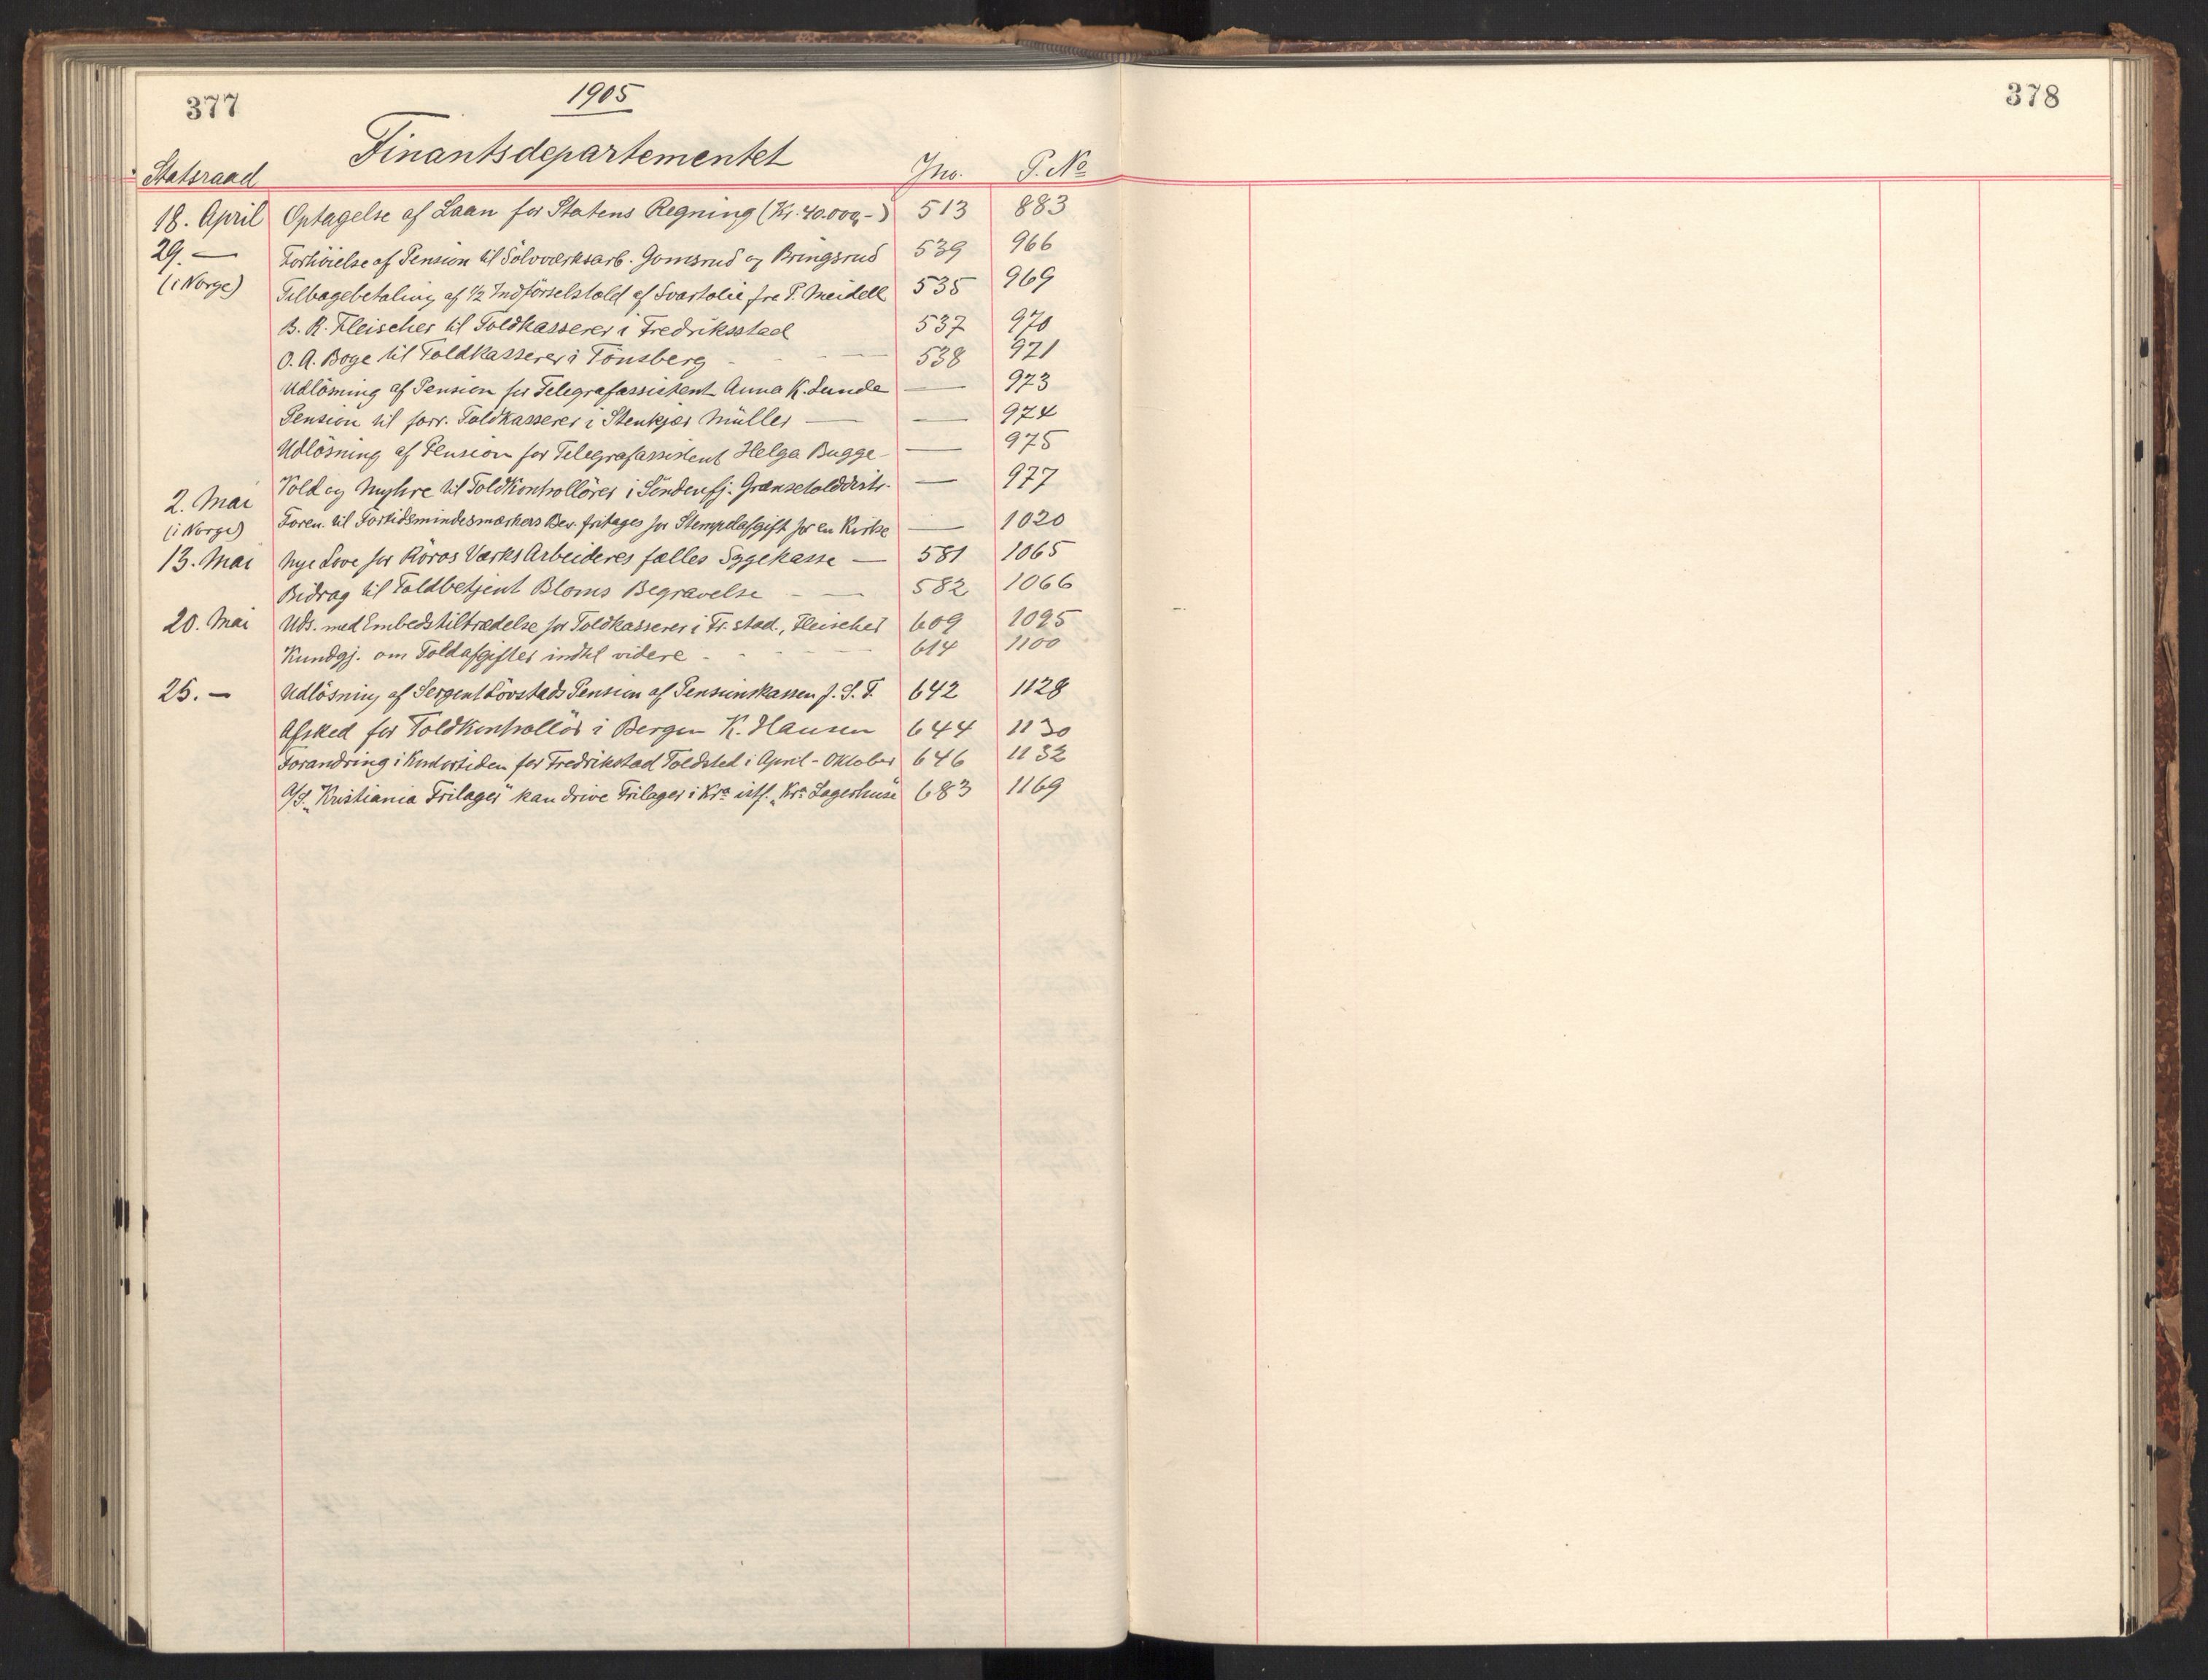 377
1905
378
Finantsdepartementet
Statsraad Jno. P. No
18. April Optagelse af Laan for Statens Regning (Kr. 40.000,-) 513 883
29. — Forhöielse af Pension til Sölvværksarb. Gomsrud og Bringsrud 539 966
(i Norge) Tilbagebetaling af 1/2 Indförselstold af Svartolie fra P. Meidell 535 969
B. R. Fleischer til Toldkasserer i Fredriksstad 537 970
O. A. Boge til Toldkasserer i Tönsberg - — 538 971
Udlösning af Pension for Telegrafassistent Anna K. Lunde — 973
Pension til forr. Toldkasserer i Stenkjær Müller — — 974
Udlösning af Pension for Telegrafassistent Helga Bugge — 975
Vold og Myhre til Toldkontrollörer i Söndenfj. Grænsetolddistr. — 977
2. Mai
(i Norge) Foren. til Fortidsmindesmærkers Bev. fritages for Stempelafgift for en Kirke — 1020
13. Mai Nye Love for Röros Værks Arbeideres fælles Sygekasse — 581 1065
Bidrag til Toldbetjent Bloms Begravelse - — 582 1066
20. Mai Uds. med Embedstiltrædelse for Toldkasserer i Fr.stad, Fleischer 609 1095
Kundgj. om Toldafgifter indtil videre - - — 614 1100
25. — Udlösning af Sergent Lövstads Pension af Pensionskassen f. S. T. 642 1128
Afsked for Toldkontrollör i Bergen K. Hansen 644 1130
Forandring i Kontortiden for Fredrikstad Toldsted i April - Oktober 646 1132
A/S. "Kristiania Frilager" kan drive Frilager i Kra istf. "Kra Lagerhuse 683 1169